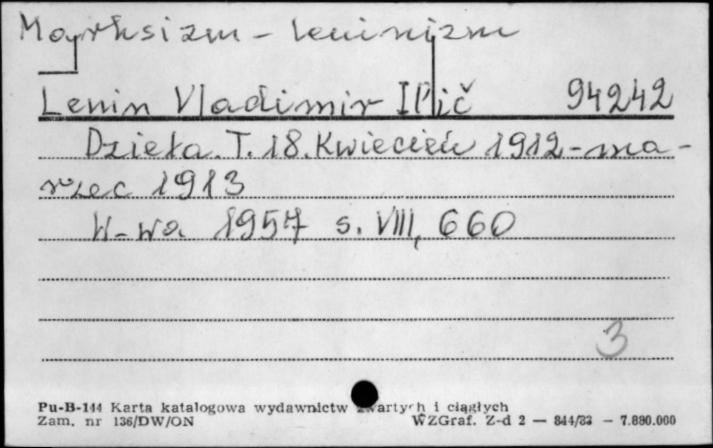 Marksizm - leninizm
Lenin Vladimir Il'ič 94242
Dzieła. T. 18. Kwiecień 1912 - ma-
rzec 1913
W-wa 1957 s. VIII, 660
3
Pu-B-144 Karta katalogowa wydawnictw zwartych i ciągłych
Zam. nr 136/DW/ON WZGraf. Z-d 2 — 844/83 — 7.890.000